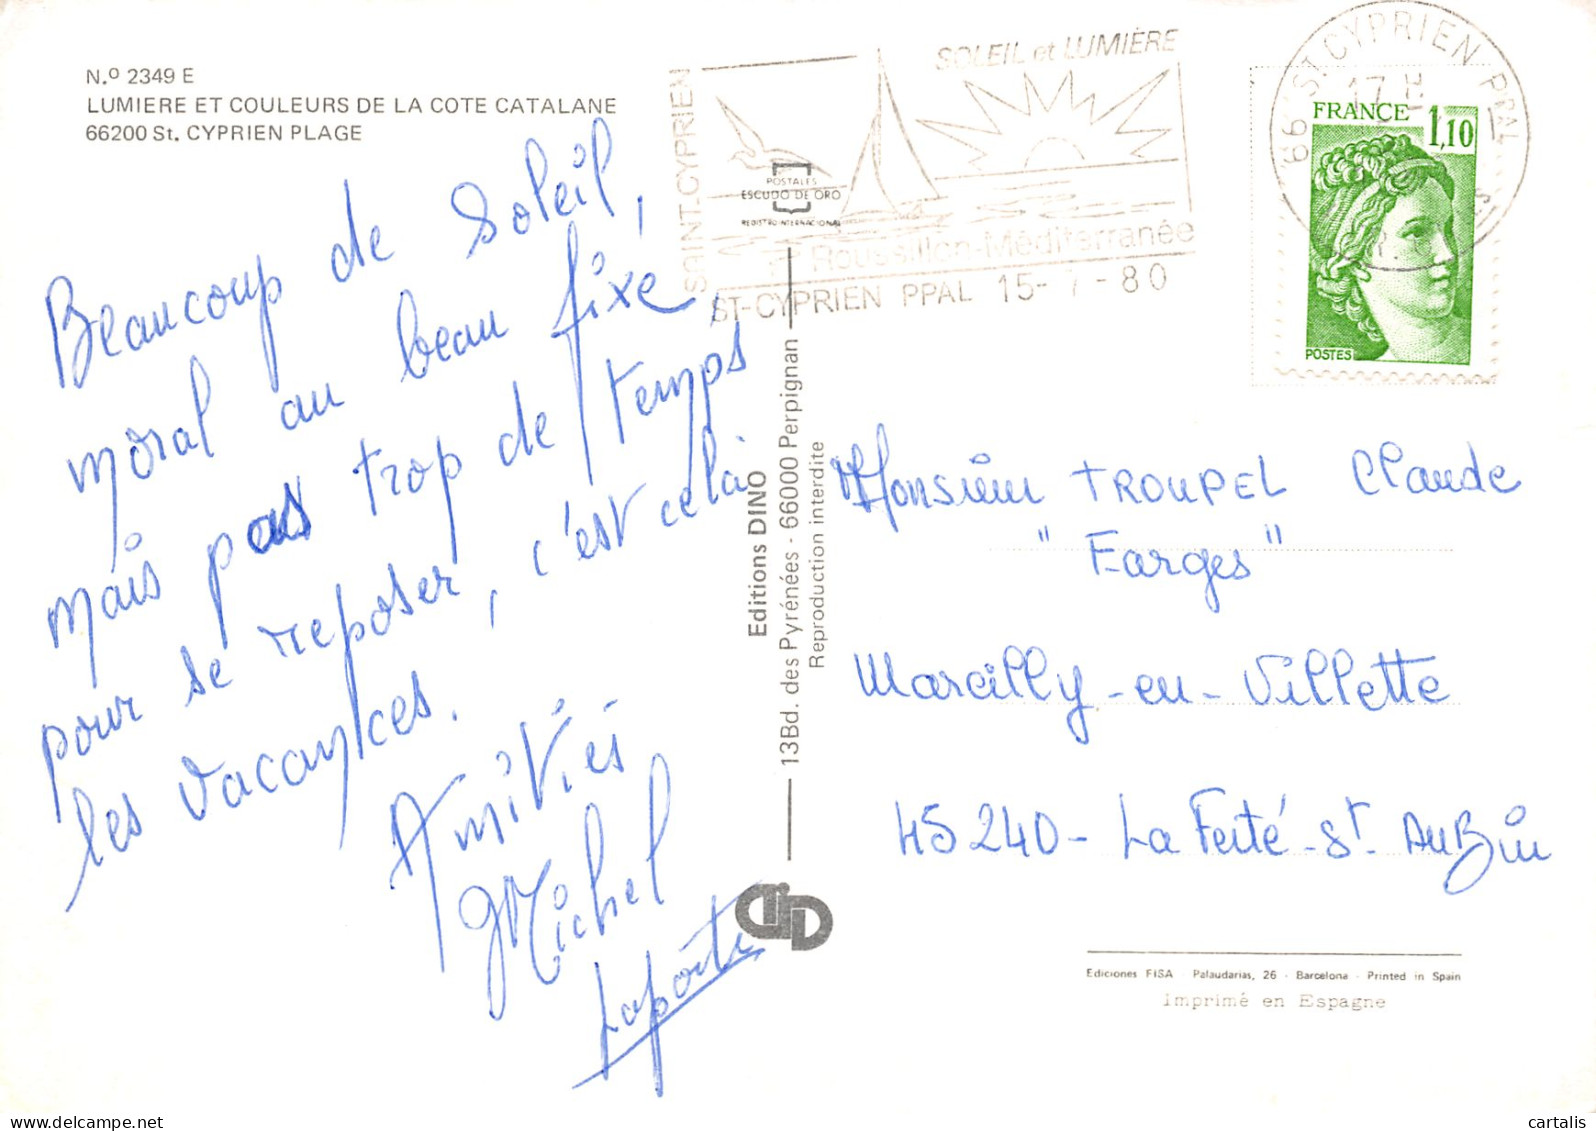 N.º 2349 E
LUMIERE ET COULEURS DE LA COTE CATALANE
66200 St. CYPRIEN PLAGE
Beaucoup de Soleil,
moral au beau fixe,
mais pas trop de temps
pour se reposer, c'est cela
les vacances.
Amitiés
Michel
Laporte
SAINT-CYPRIEN
SOLEIL et LUMIÈRE
POSTALES
ESCUDO DE ORO
REGISTRO INTERNACIONAL
Roussillon-Méditerranée
ST-CYPRIEN PPAL 15-7-80
66 ST CYPRIEN PPAL
17 H
FRANCE 1,10
POSTES
Editions DINO
13Bd. des Pyrénées - 66000 Perpignan
Reproduction interdite
Monsieur TROUPEL Claude
"Farges"
Marcilly-en-Villette
45240 - La Ferté-St AuBin
Ediciones FISA - Palaudarias, 26 - Barcelona - Printed in Spain
Imprimé en Espagne
cartalis
www.delcampe.net